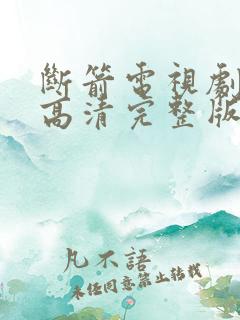 斷箭電視劇
高清完整版
凡不語
未經同意禁止轉載